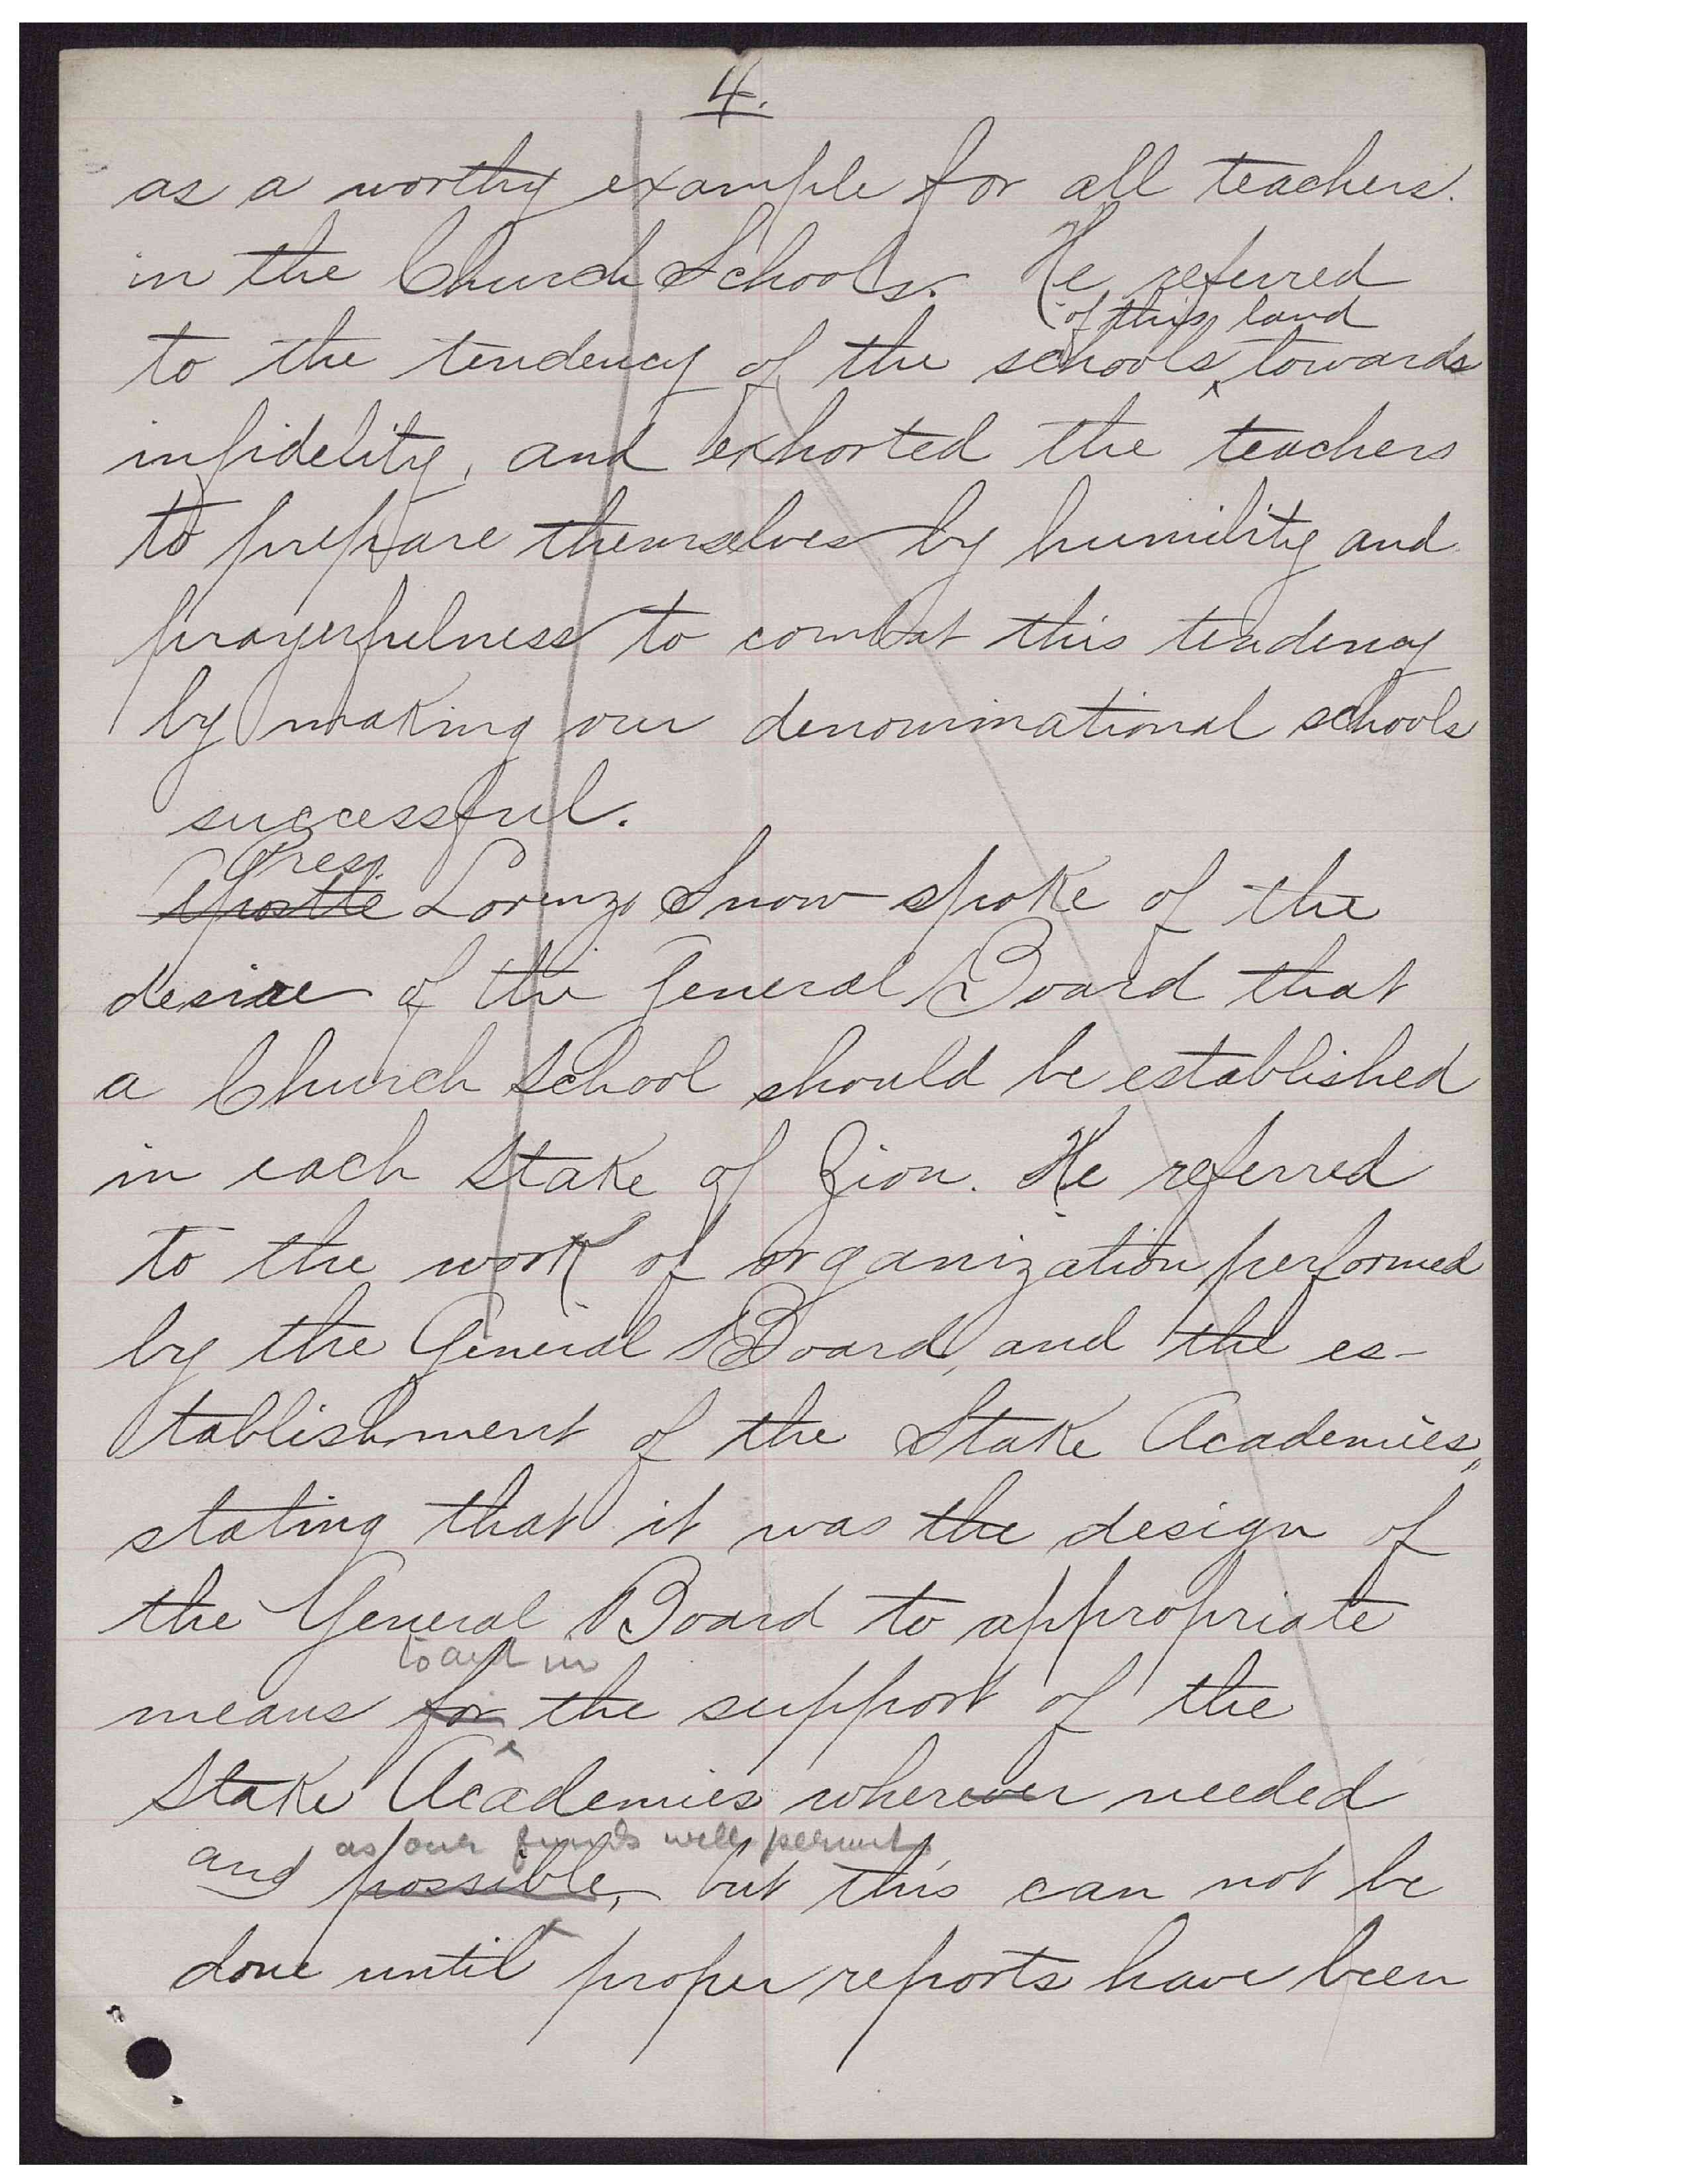 4.
as a worthy example for all teachers.
in the Church Schools. He referred
of this land
to the tendency of the schools towards
infidelity, and exhorted the teachers
to prepare themselves by humility and
prayerfulness to combat this tendency
by making our denominational schools
successful.
Pres.
Apostle Lorenzo Snow spoke of the
desire of the General Board that
a Church School should be established
in each Stake of Zion. He referred
to the work of organization performed
by the General Board, and the es-
tablishment of the Stake Academies,
stating that it was the design of
the General Board to appropriate
to aid in
means for the support of the
Stake Academies wherever needed
as our funds will permit,
and possible, but this can not be
done until proper reports have been